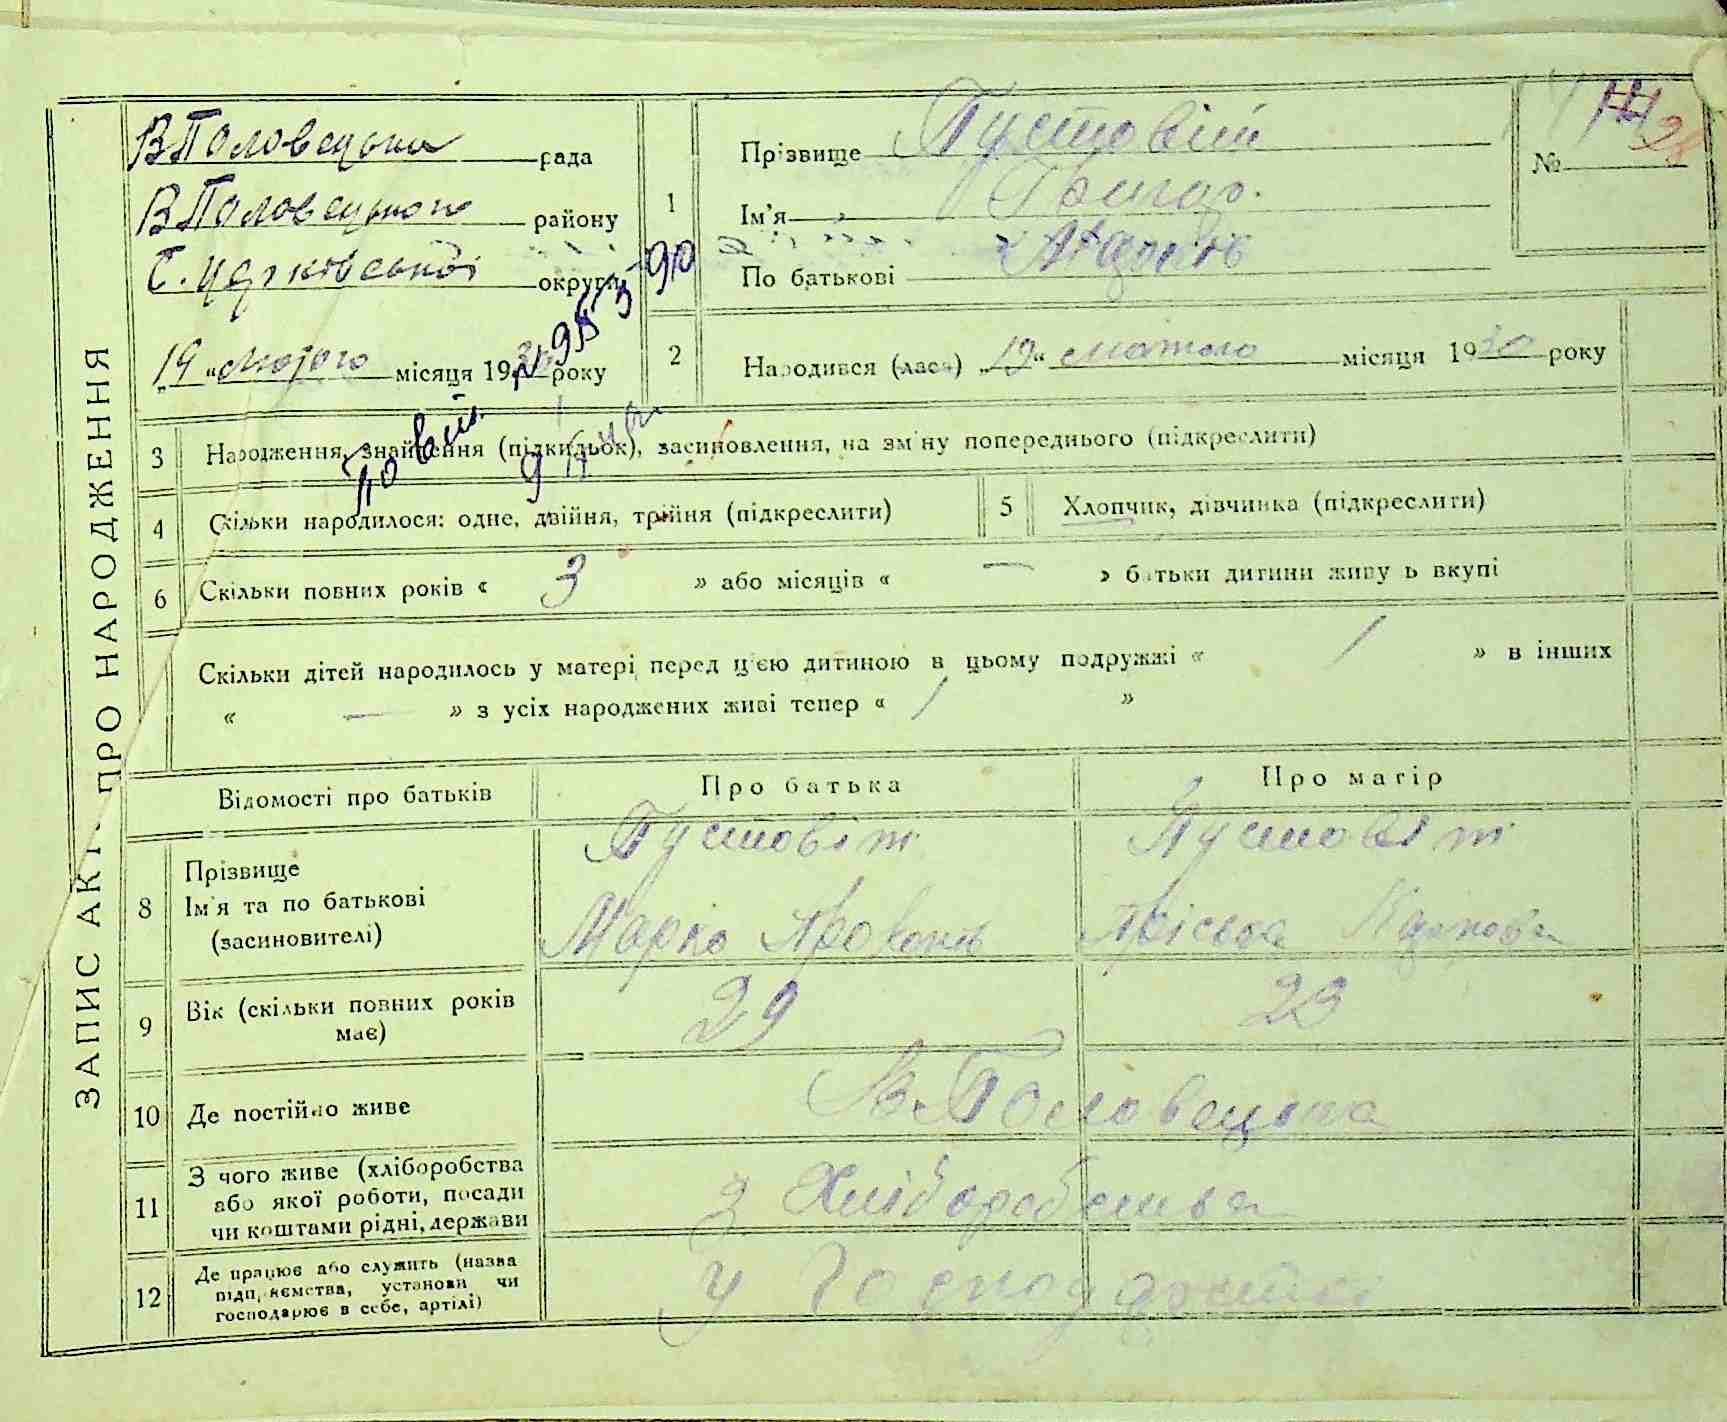 ЗАПИС АКТ ПРО НАРОДЖЕННЯ
В Половецька рада
В Половецького району
Б. Церківської округи
„19“ лютого місяця 1930 року
№ 28
1 Прізвище Пустовіт
Ім'я Григор.
По батькові
2 Народився (лася) „19“ лютого місяця 1930 року
3 Народження, знайдення (підкидьок), засиновлення, на зміну попереднього (підкреслити)
4 Скільки народилося: одне, двійня, трійня (підкреслити)
5 Хлопчик, дівчинка (підкреслити)
6 Скільки повних років « 3 » або місяців « — » батьки дитини живуть вкупі
Скільки дітей народилось у матері перед цією дитиною в цьому подружжі « / » в інших
« — » з усіх народжених живі тепер « / »
Відомості про батьків Про батька Про матір
8 Прізвище
Ім'я та по батькові
(засиновителі)
Пустовіт
Марко
Пустовіт
9 Вік (скільки повних років
має)
29
23
10 Де постійно живе
В. Половецька
11 З чого живе (хліборобства
або якої роботи, посади
чи коштами рідні, держави
З Хліборобства
12 Де працює або служить (назва
підприємства, установи чи
господарює в себе, артілі)
У